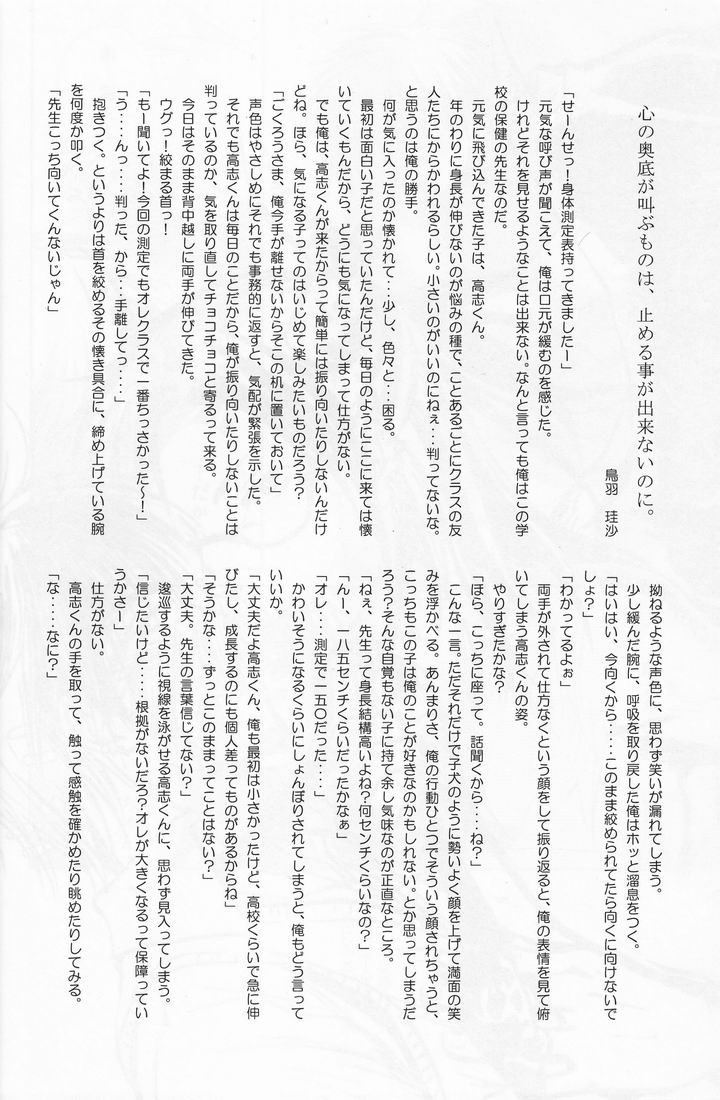 心の奥底が叫ぶものは、止める事が出来ないのに。
鳥羽 珪沙
「せーんせっ！身体測定表持ってきましたー」
元気な呼び声が聞こえて、俺は口元が緩むのを感じた。
けれどそれを見せるようなことは出来ない。なんと言っても俺はこの学
校の保健の先生なのだ。
元気に飛び込んできた子は、高志くん。
年のわりに身長が伸びないのが悩みの種で、ことあるごとにクラスの友
人たちにからかわれるらしい。小さいのがいいのにねぇ・・・判ってないな。
と思うのは俺の勝手。
何が気に入ったのか懐かれて・・少し、色々と・・・困る。
最初は面白い子だと思っていたんだけど、毎日のようにここに来ては懐
いていくもんだから、どうにも気になってしまって仕方がない。
でも俺は、高志くんが来たからって簡単には振り向いたりしないんだけ
どね。ほら、気になる子ってのはいじめて楽しみたいものだろう？
「ごくろうさま、俺今手が離せないからそこの机に置いておいて」
声色はやさしめにそれでも事務的に返すと、気配が緊張を示した。
それでも高志くんは毎日のことだから、俺が振り向いたりしないことは
判っているのか、気を取り直してチョコチョコと寄るって来る。
今日はそのまま背中越しに両手が伸びてきた。
ウグっ！絞まる首っ！
「もー聞いてよ！今回の測定でもオレクラスで一番ちっさかった～！」
「う・・・んっ・・・・判った、から・・・手離してっ・・・・」
抱きつく。というよりは首を絞めるその懐き具合に、締め上げている腕
を何度か叩く。
「先生こっち向いてくんないじゃん」
拗ねるような声色に、思わず笑いが漏れてしまう。
少し緩んだ腕に、呼吸を取り戻した俺はホッと溜息をつく。
「はいはい、今向くから・・・・・このまま絞められてたら向くに向けないで
しょ？」
「わかってるよぉ」
両手が外されて仕方なくという顔をして振り返ると、俺の表情を見て俯
いてしまう高志くんの姿。
やりすぎたかな？
「ほら、こっちに座って。話聞くから・・・・ね？」
こんな一言。ただそれだけで子犬のように勢いよく顔を上げて満面の笑
みを浮かべる。あんまりさ、俺の行動ひとつでそういう顔されちゃうと、
こっちもこの子は俺のことが好きなのかもしれない。とか思ってしまうだ
ろう？そんな自覚もない子に持て余し気味なのが正直なところ。
「ねぇ、先生って身長結構高いよね？何センチくらいなの？」
「んー、一八五センチくらいだったかなぁ」
「オレ・・・・測定で一五〇だった・・・・」
かわいそうになるくらいにしょんぼりされてしまうと、俺もどう言って
いいか。
「大丈夫だよ高志くん、俺も最初は小さかったけど、高校くらいで急に伸
びたし、成長するのにも個人差ってものがあるからね」
「そうかな・・・ずっとこのままってことはない？」
「大丈夫。先生の言葉信じてない？」
逡巡するように視線を泳がせる高志くんに、思わず見入ってしまう。
「信じたいけど・・・・根拠がないだろ？オレが大きくなるって保障ってい
うかさー」
仕方がない。
高志くんの手を取って、触って感触を確かめたり眺めたりしてみる。
「な・・・・なに？」